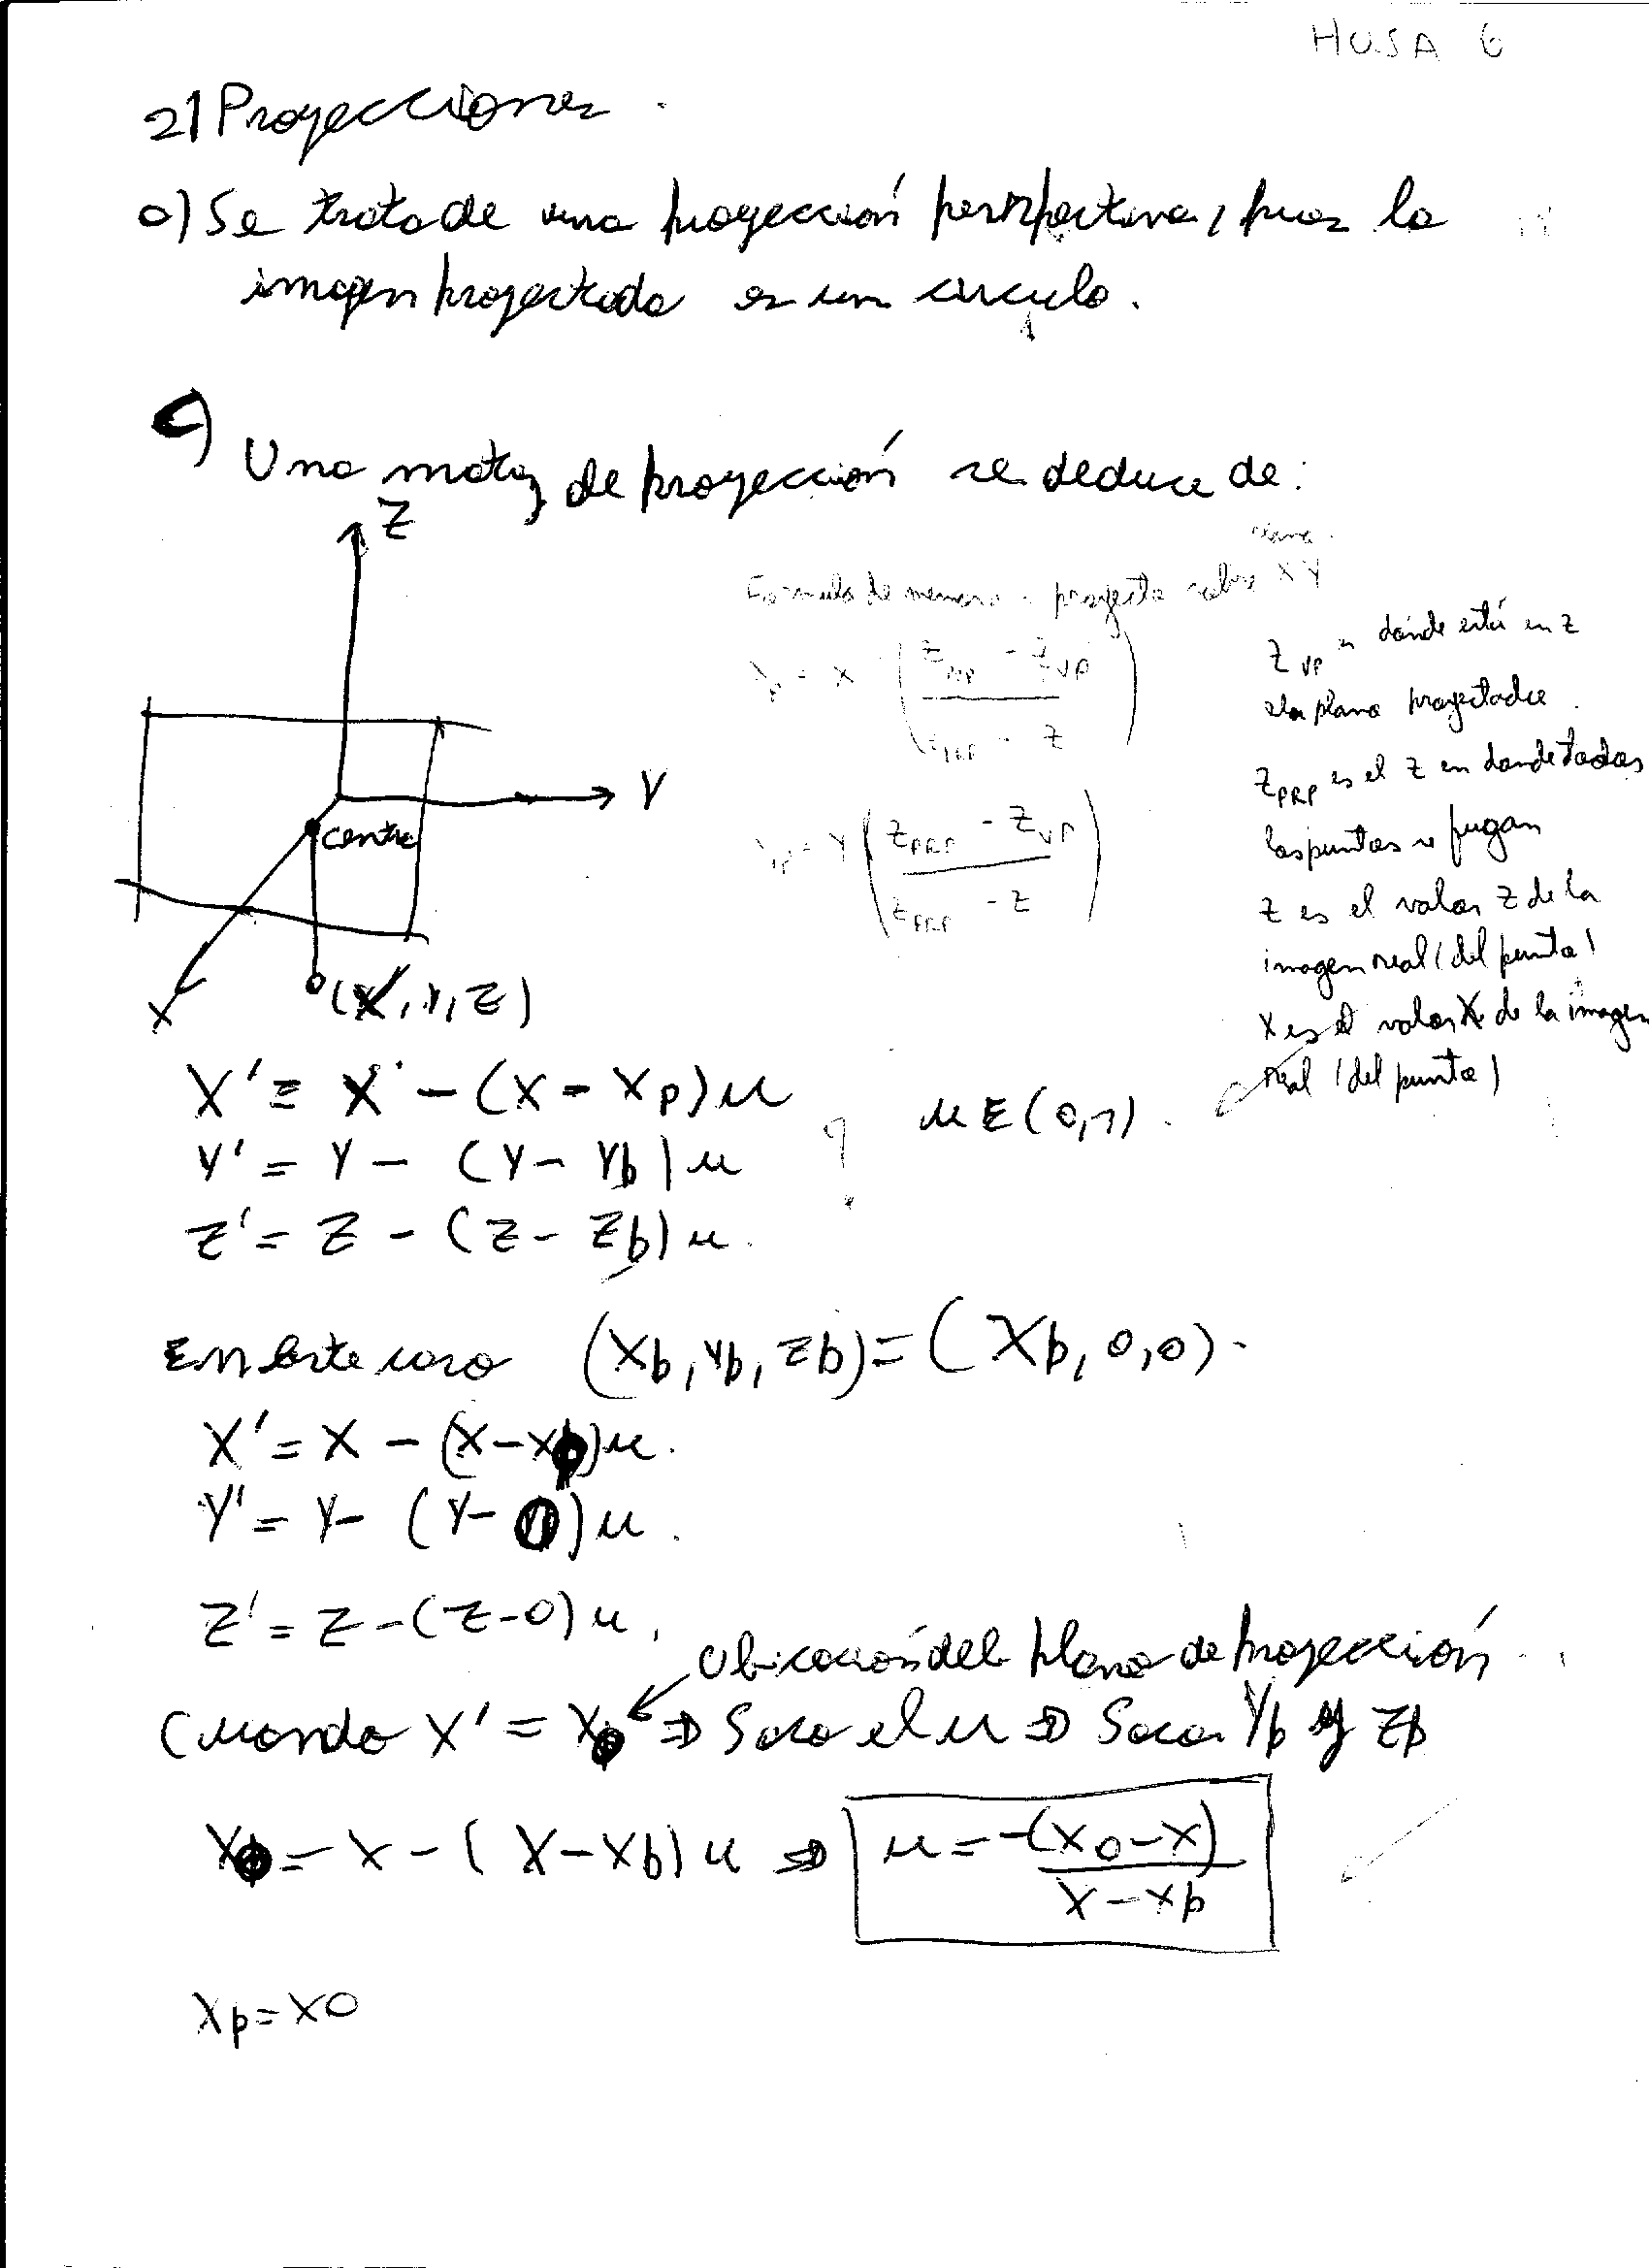 HOJA 6
2) Proyecciones
a) Se trata de una proyección perspectiva, pues la
imagen proyectada es un circulo.
c) Una matriz de proyección se deduce de:
Z
Y
centro
X
(X, Y, Z)
plano
Formula de memoria: proyecta sobre XY
Xp = X (Z_PRP - Z_VP / Z_PRP - Z)
Yp = Y (Z_PRP - Z_VP / Z_PRP - Z)
Z_VP es donde está en Z
el plano
Z_PRP es el Z en donde todos
los puntos se fugan
Z es el valor Z de la
imagen real (del punto)
X es el valor X de la imagen
real (del punto)
X' = X - (X - Xp)u
Y' = Y - (Y - Yp)u
u E (0,1).
Z' = Z - (Z - Zp)u.
En este caso (Xp, Yp, Zp) = (Xp, 0, 0).
X' = X - (X - Xp)u.
Y' = Y - (Y - 0)u.
Z' = Z - (Z - 0)u.
Ubicación del plano de proyección
Cuando X' = X0 => Saco el u => Saco Yp y Zp
X0 = X - (X - Xp)u => u = -(X0 - X) / X - Xp
Xp = X0